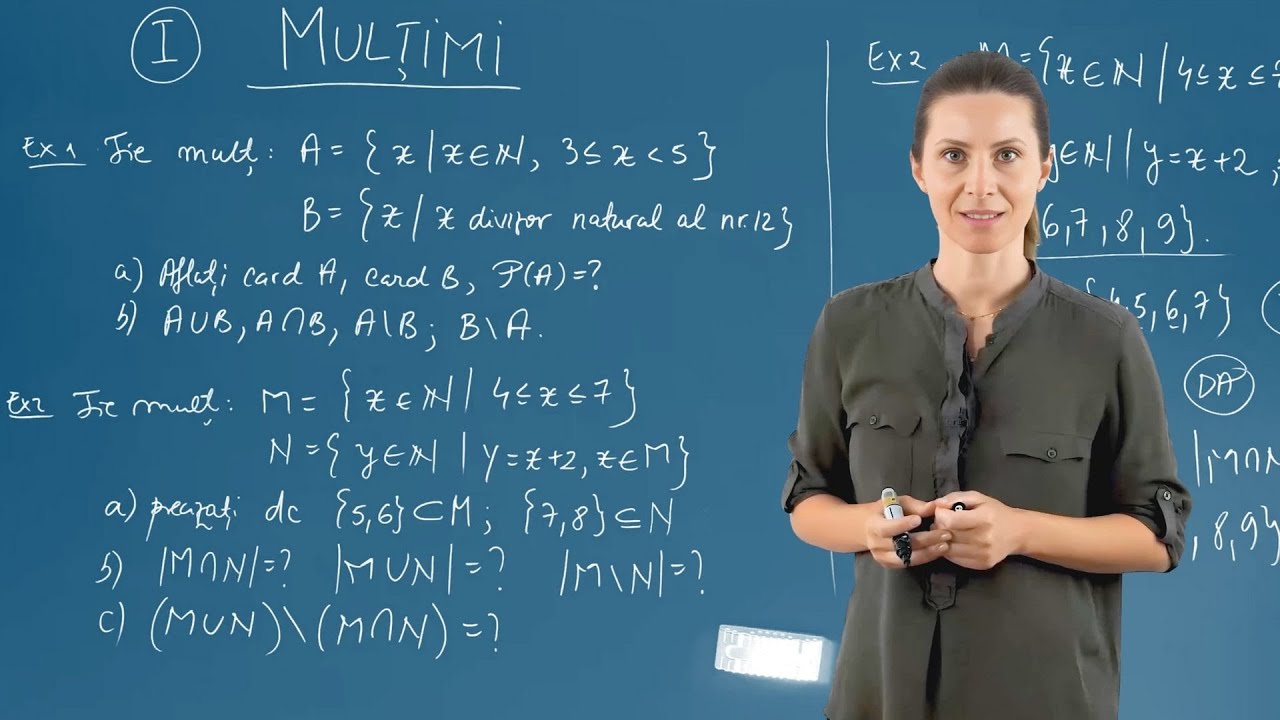 I MULȚIMI
Ex 1 Fie mulț: A = { x / x ∈ ℕ, 3 ≤ x < 5 }
B = { x / x divizor natural al nr. 12 }
a) Aflați card A, card B, 𝒫(A) = ?
b) A∪B, A∩B, A\B; B\A.
Ex2 Fie mulț: M = { x ∈ ℕ | 4 ≤ x ≤ 7 }
N = { y ∈ ℕ | y = x+2, x ∈ M }
a) precizați dc {5,6} ⊂ M; {7,8} ⊆ N
b) |M∩N| = ? |M∪N| = ? |M\N| = ?
c) (M∪N)\(M∩N) = ?
Ex2 M = { x ∈ ℕ | 4 ≤ x ≤ 7
y ∈ ℕ | y = x+2,
6,7,8,9}.
5,6,7}
DA
|M∩N
, 8,9}